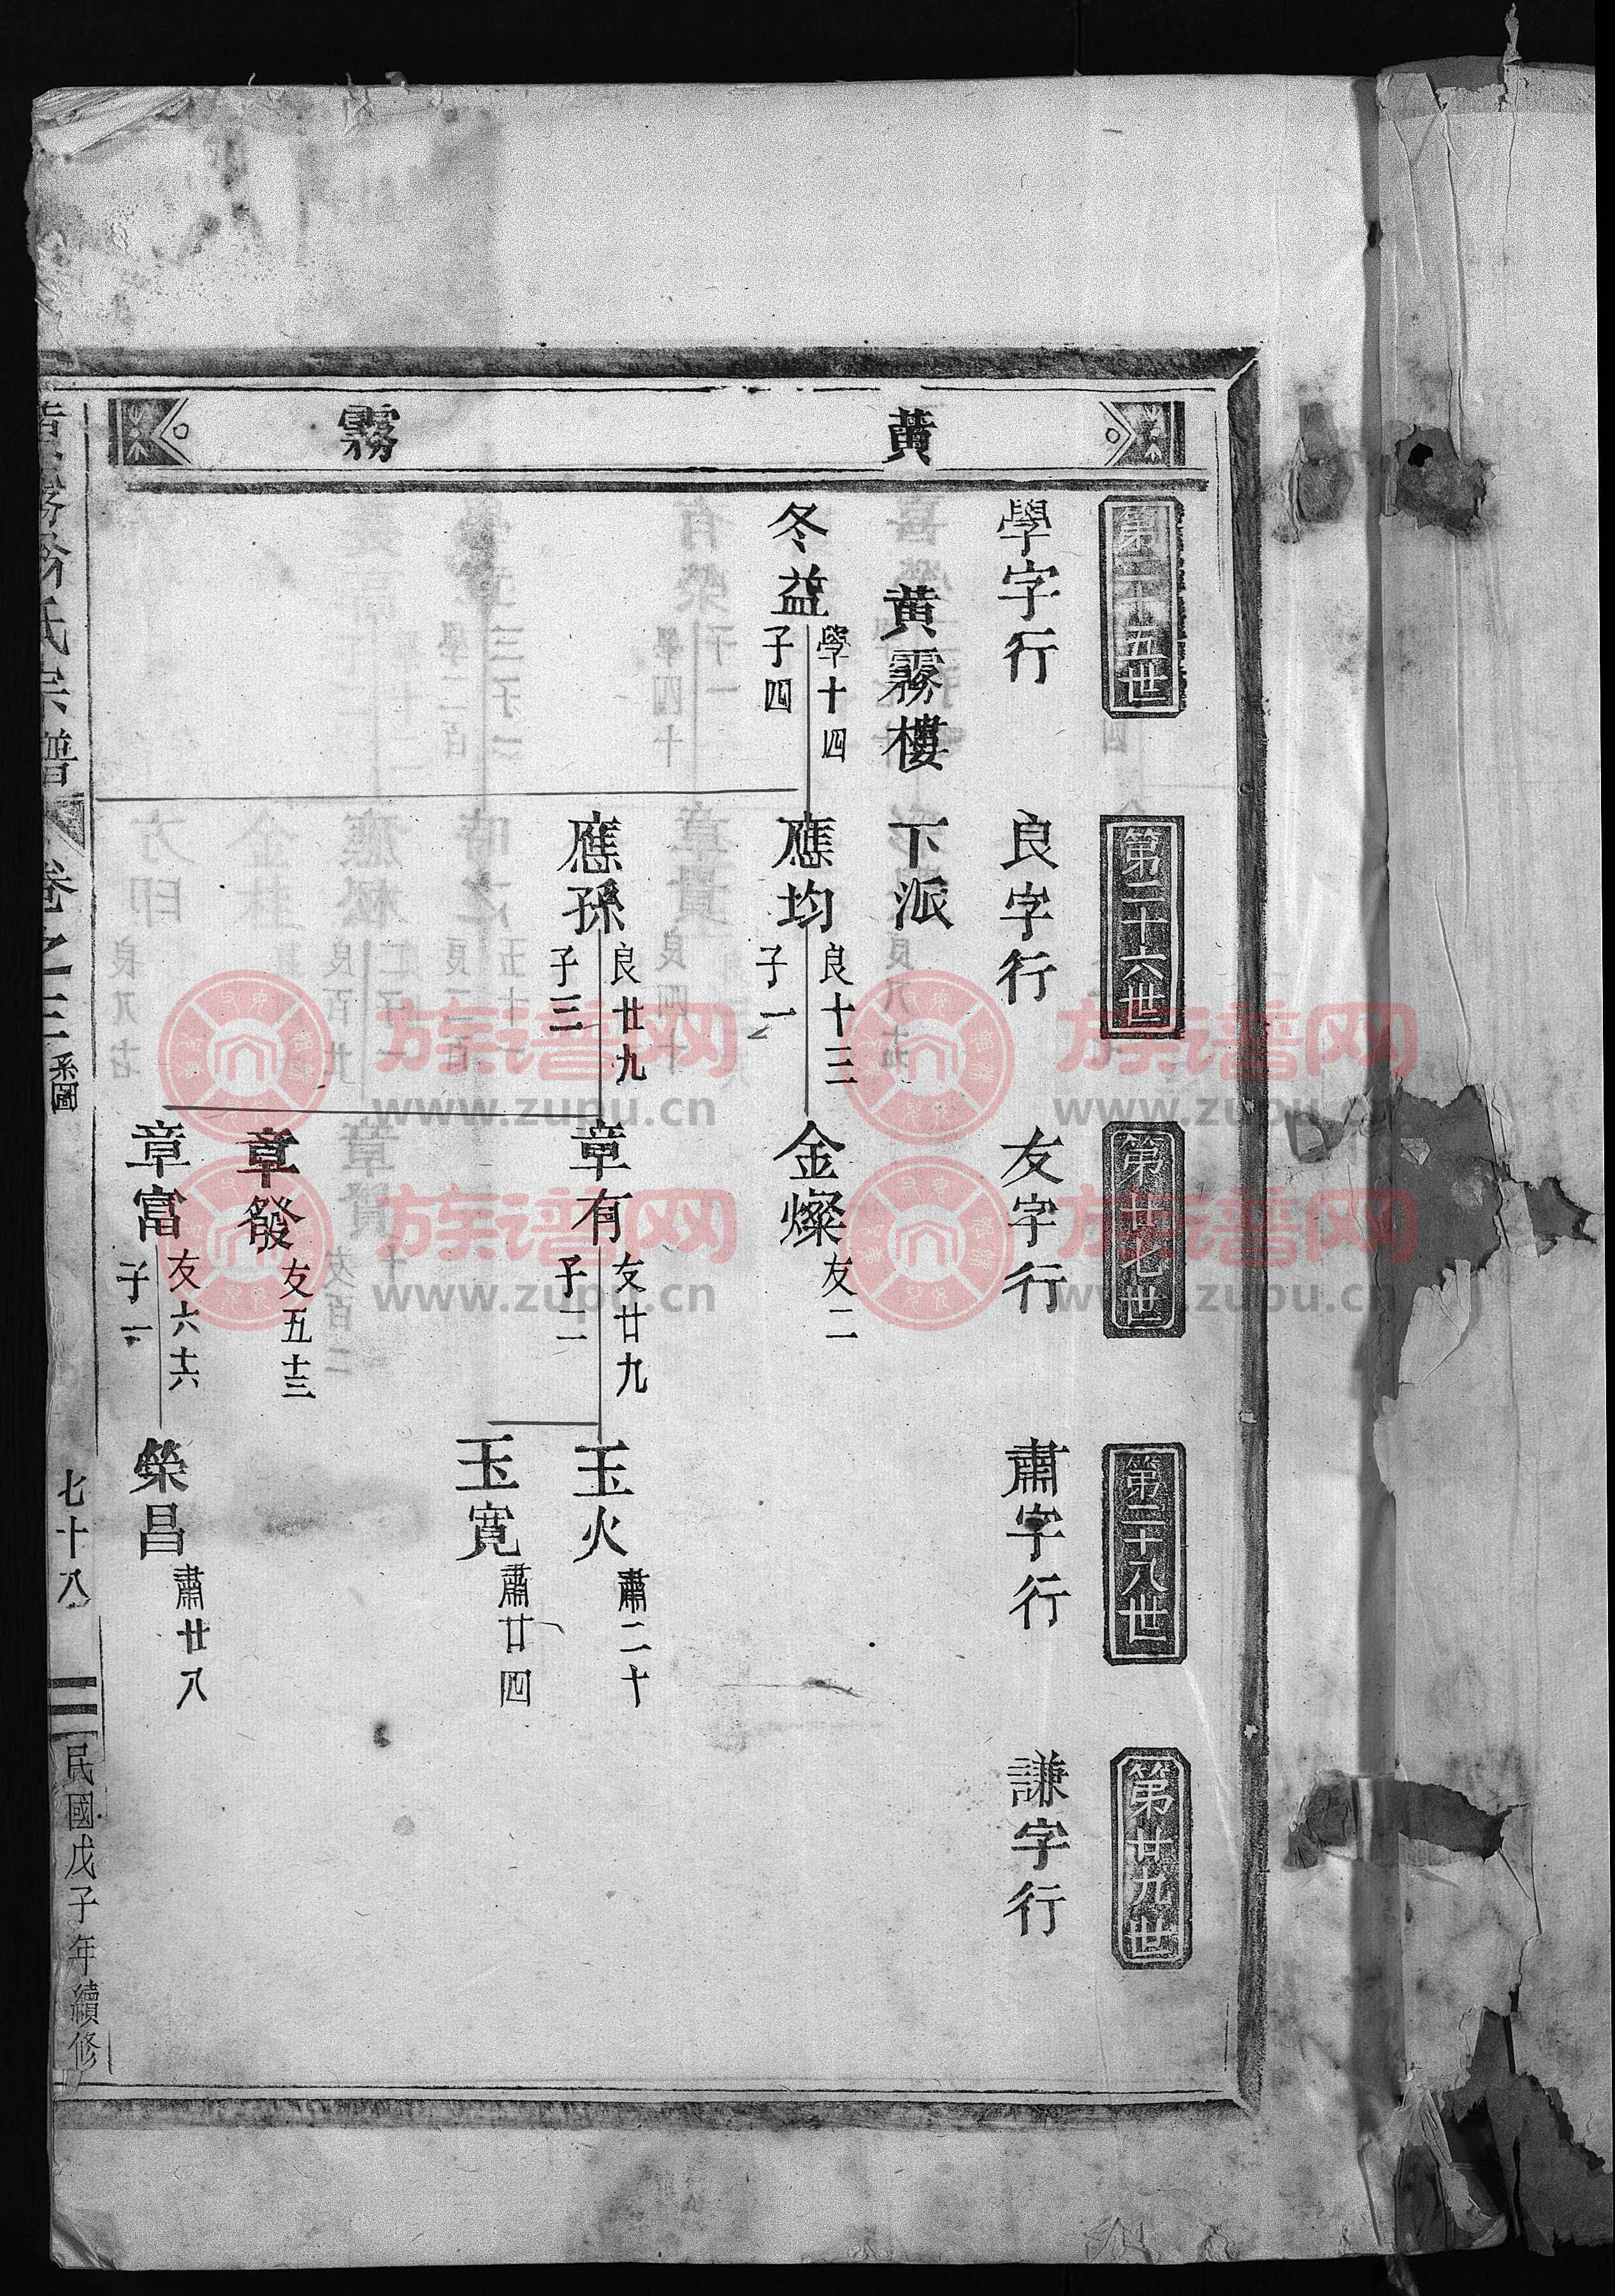 黄霧
第二十五世
學字行
第二十六世
良字行
第廿七世
友字行
第二十八世
肅字行
第廿九世
謙字行
黄霧樓下派
冬益
學十四
子四
應均
良十三
子一
金燦
友二
應孫
良廿九
子三
章有
友廿九
子二
玉火
肅二十
玉寬
肅廿四
章發
友五十三
章富
友六十六
子一
榮昌
肅廿八
氏宗譜
卷之三
系圖
七十八
民國戊子年續修
族谱网
www.zupu.cn
族谱网
www.zupu.cn
族谱网
www.zupu.cn
族谱网
www.zupu.cn